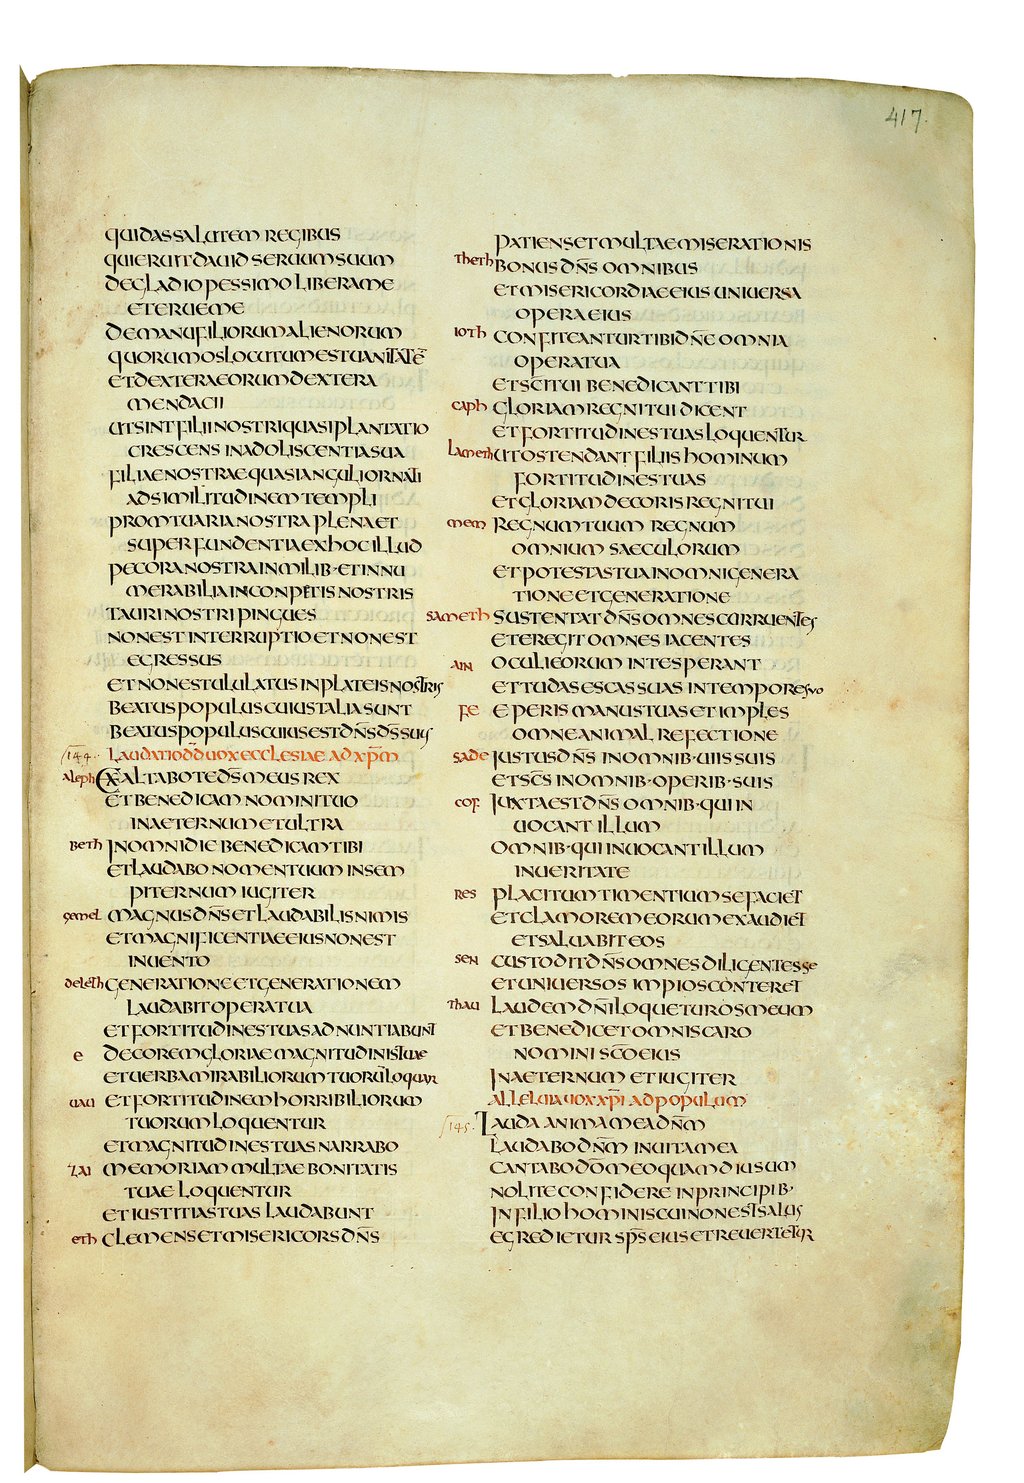 417.
QUI DAS SALUTEM REGIBUS
QUI ERUIT DAUID SERUUM SUUM
DE GLADIO PESSIMO LIBERA ME
ET ERUE ME
DE MANU FILIORUM ALIENORUM
QUORUM OS LOCUTUM EST UANITATĒ
ET DEXTERA EORUM DEXTERA
MENDACII
UT SINT FILII NOSTRI QUASI PLANTATIO
CRESCENS IN ADOLISCENTIA SUA
FILIAE NOSTRAE QUASI ANGULI ORNATI
AD SIMILITUDINEM TEMPLI
PROMTUARIA NOSTRA PLENA ET
SUPERFUNDENTIA EX HOC ILLUD
PECORA NOSTRA IN MILIB· ET INNU
MERABILIA IN CONPETIS NOSTRIS
TAURI NOSTRI PINGUES
NON EST INTERRUPTIO ET NON EST
EGRESSUS
ET NON EST ULULATUS IN PLATEIS NOSTRIS
BEATUS POPULUS CUIUS TALIA SUNT
BEATUS POPULUS CUIUS EST DN̄S D̄S SUUS
144. LAUDATIO D̄D UOX ECCLESIAE AD XP̄M
ALEPH EXALTABO TE D̄S MEUS REX
ET BENEDICAM NOMINI TUO
IN AETERNUM ET ULTRA
BETH IN OMNI DIE BENEDICAM TIBI
ET LAUDABO NOMEN TUUM IN SEM
PITERNUM IUGITER
GEMEL MAGNUS DN̄S ET LAUDABILIS NIMIS
ET MAGNIFICENTIAE EIUS NON EST
INUENTO
DELETH GENERATIO NE ET GENERATIONEM
LAUDABIT OPERA TUA
ET FORTITUDINES TUAS ADNUNTIABUNT
E DECOREM GLORIAE MAGNITUDINIS TUAE
ET UERBA MIRABILIORUM TUORŪ LOQUAR
UAU ET FORTITUDINEM HORRIBILIORUM
TUORUM LOQUENTUR
ET MAGNITUDINES TUAS NARRABO
ZAI MEMORIAM MULTAE BONITATIS
TUAE LOQUENTUR
ET IUSTITIAS TUAS LAUDABUNT
ETH CLEMENS ET MISERICORS DN̄S
PATIENS ET MULTAE MISERATIONIS
THETH BONUS DN̄S OMNIBUS
ET MISERICORDIAE EIUS UNIUERSA
OPERA EIUS
IOTH CONFITEANTUR TIBI DN̄E OMNIA
OPERA TUA
ET SC̄I TUI BENEDICANT TIBI
CAPH GLORIAM REGNI TUI DICENT
ET FORTITUDINES TUAS LOQUENTUR
LAMETH UT OSTENDANT FILIIS HOMINUM
FORTITUDINES TUAS
ET GLORIAM DECORIS REGNI TUI
MEM REGNUM TUUM REGNUM
OMNIUM SAECULORUM
ET POTESTAS TUA IN OMNI GENERA
TIONE ET GENERATIONE
SAMETH SUSTENTAT DN̄S OMNES CORRUENTES
ET EREGIT OMNES IACENTES
AIN OCULI EORUM IN TE SPERANT
ET TU DAS ESCAS SUAS IN TEMPORE SUO
FE EPERIS MANUS TUAS ET IMPLES
OMNE ANIMAL REFECTIONE
SADE IUSTUS DN̄S IN OMNIB· UIIS SUIS
ET SC̄S IN OMNIB· OPERIB· SUIS
COF IUXTA EST DN̄S OMNIB· QUI IN
UOCANT ILLUM
OMNIB· QUI INUOCANT ILLUM
IN UERITATE
RES PLACITUM TIMENTIUM SE FACIET
ET CLAMOREM EORUM EXAUDIET
ET SALUABIT EOS
SEN CUSTODIT DN̄S OMNES DILIGENTES SE
ET UNIUERSOS IMPIOS CONTERET
THAU LAUDEM DN̄I LOQUETUR OS MEUM
ET BENEDICET OMNIS CARO
NOMINI SC̄O EIUS
IN AETERNUM ET IUGITER
ALLELUIA UOX XP̄I AD POPULUM
145. LAUDA ANIMA MEA DN̄M
LAUDABO DN̄M IN UITA MEA
CANTABO D̄O MEO QUAMDIU SUM
NOLITE CONFIDERE IN PRINCIPIB·
IN FILIO HOMINIS CUI NON EST SALUS
EGREDIETUR SP̄S EIUS ET REUERTETUR